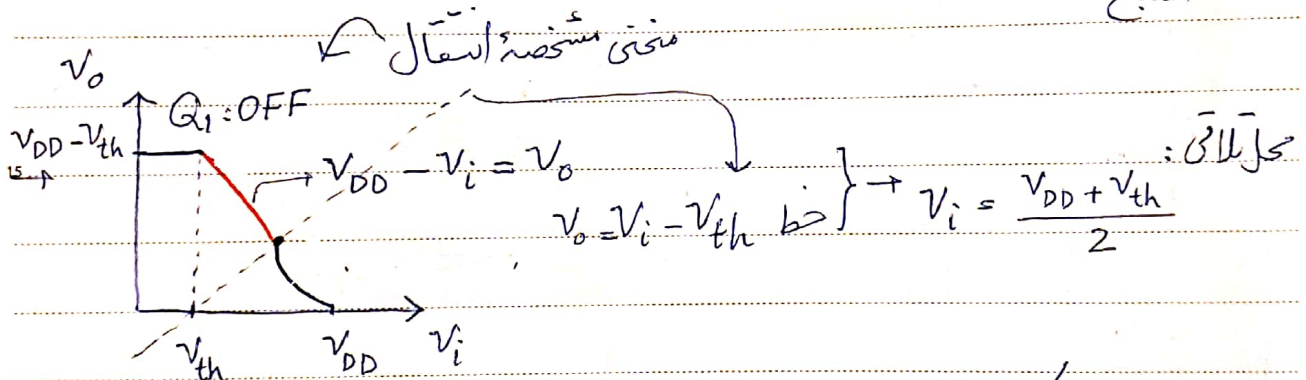 منحنی مشخصهٔ انتقال
V₀
Q₁: OFF
V_DD - V_th
V_DD - Vᵢ = V₀
خط V₀ = Vᵢ - V_th } → Vᵢ = (V_DD + V_th) / 2
محل تلاقی:
V_th V_DD Vᵢ